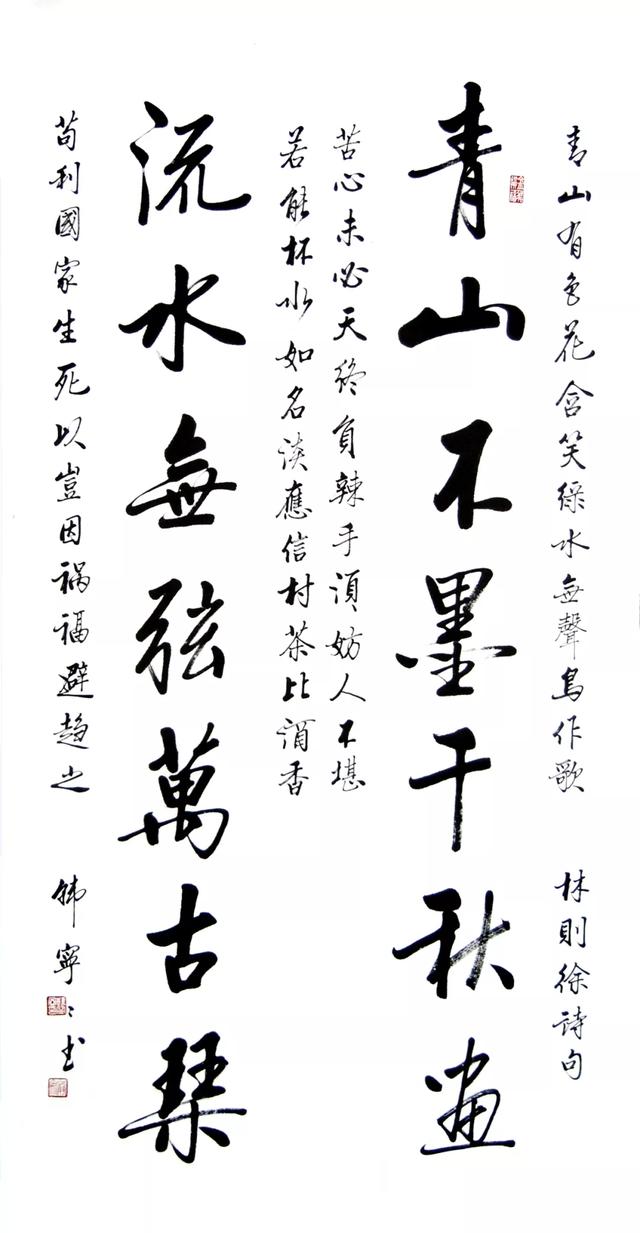 青山有色花含笑綠水無聲鳥作歌 林則徐詩句
青山不墨千秋畫
苦心未必天終負辣手須妨人不堪
若能杯水如名淡應信村茶比酒香
流水無弦萬古琴
苟利國家生死以豈因祸福避趋之 韩寧〻书